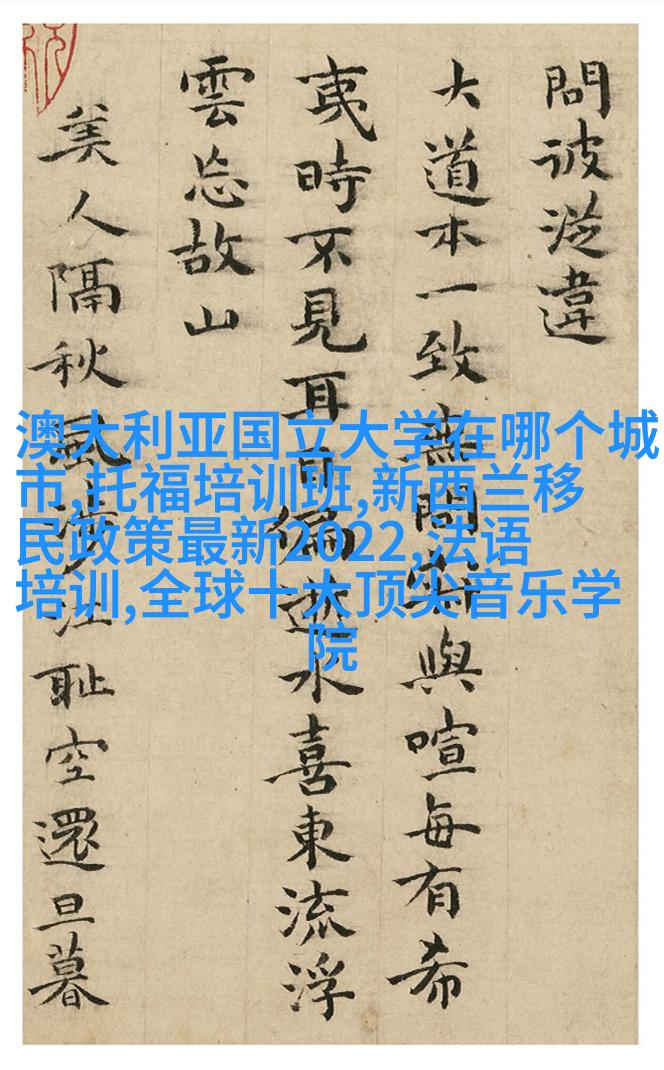 問彼從違
大道本一致無寂與喧每有希
夷時不見耳目偏逝水喜東流浮
雲忘故山
美人隔秋風涉江耻空還旦暮
澳大利亚国立大学在哪个城
市,托福培训班,新西兰移
民政策最新2022,法语
培训,全球十大顶尖音乐学
院